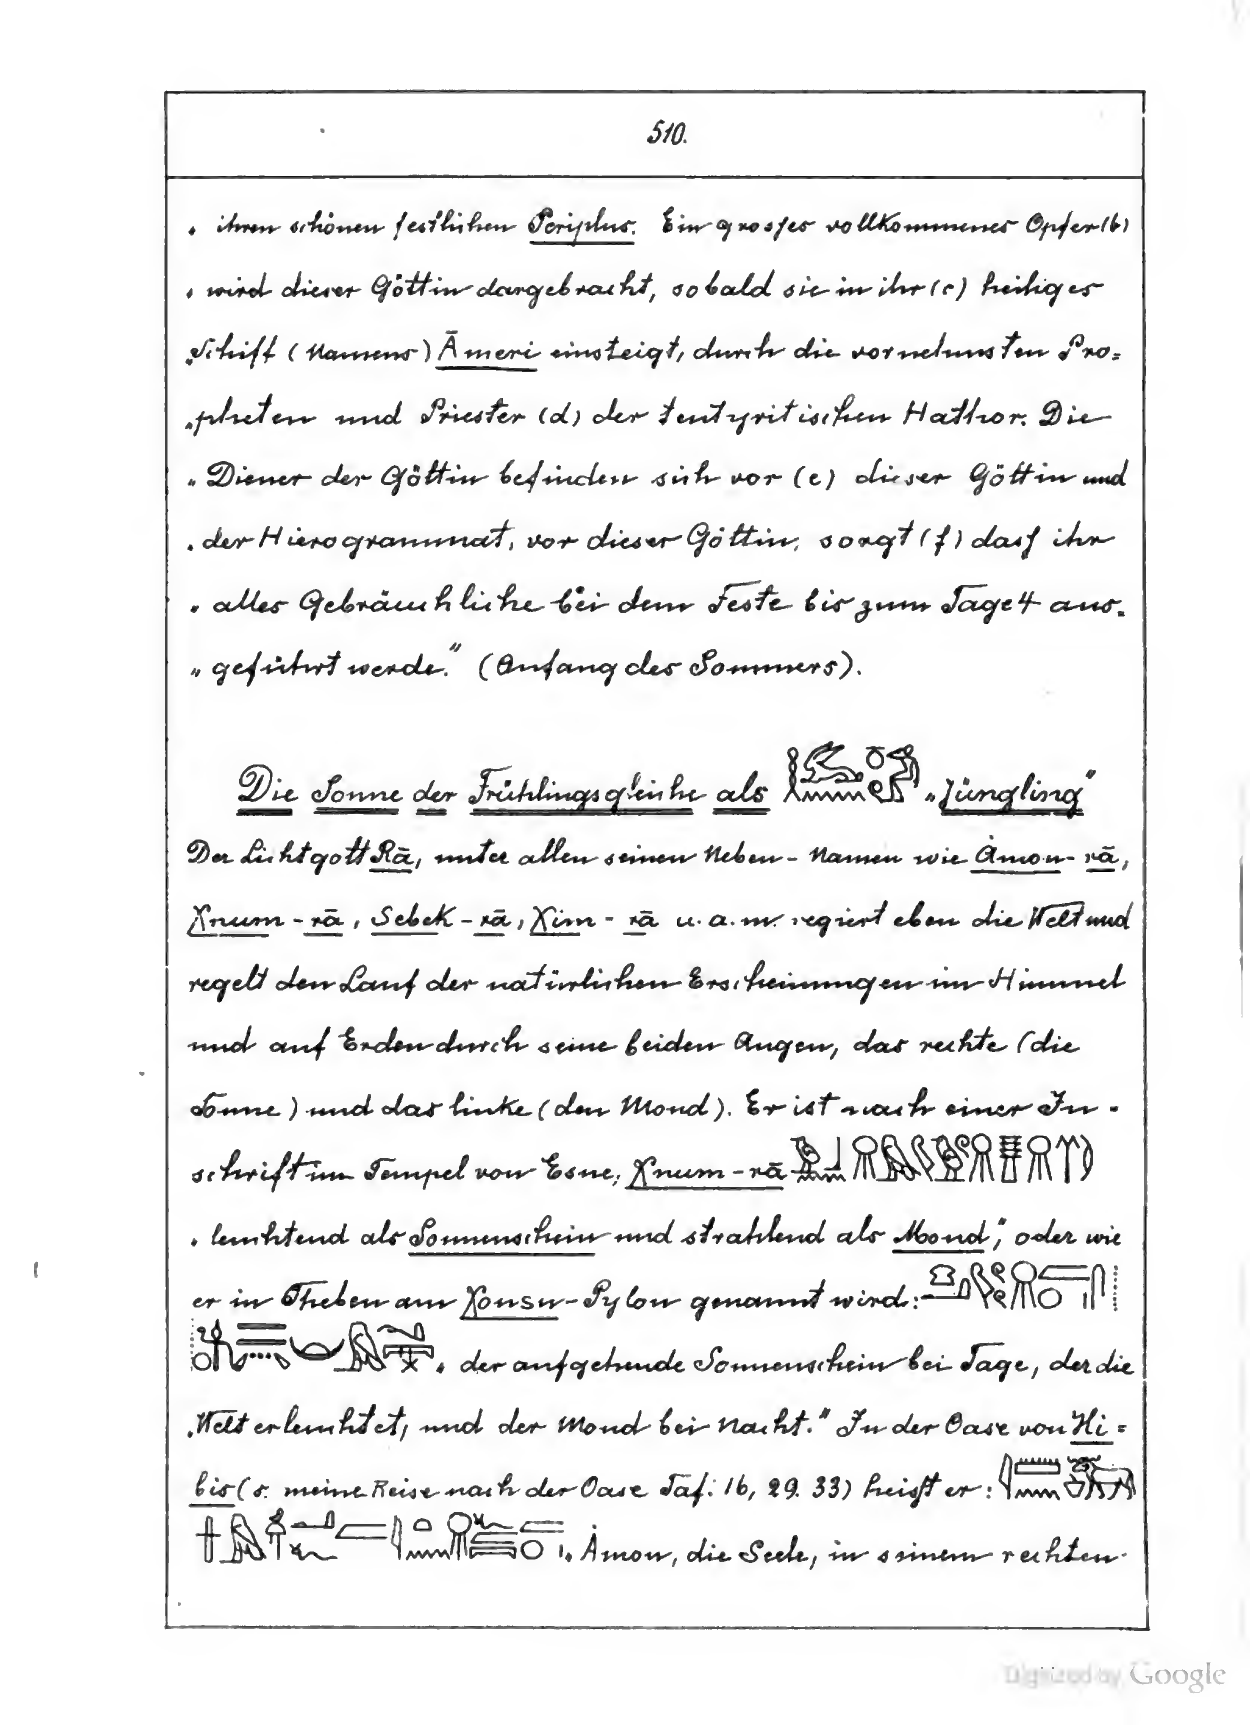 510.
„ ihren schönen festlichen Periplus. Ein grosses vollkommenes Opfer (b)
„ wird dieser Göttin dargebracht, sobald sie in ihr (c) heiliges
„Schiff (Namens) Āmeri einsteigt, durch die vornehmsten Pro=
„pheten und Priester (d) der tentyritischen Hathor. Die
„ Diener der Göttin befinden sich vor (e) dieser Göttin und
„ der Hierogrammat, vor dieser Göttin, sorgt (f) dass ihr
„ alles Gebräuchliche bei dem Feste bis zum Tage 4 aus-
„ geführt werde." (Anfang des Sommers).
Die Sonne der Frühlingsgleiche als „Jüngling"
Der Lichtgott Rā, unter allen seinen Neben-Namen wie Amon-rā,
Xnum-rā, Sebek-rā, Xim-rā u. a. m. regiert eben die Welt und
regelt den Lauf der natürlichen Erscheinungen im Himmel
und auf Erden durch seine beiden Augen, das rechte (die
Sonne) und das linke (den Mond). Er ist nach einer In-
schrift im Tempel von Esne, Xnum-rā
„ leuchtend als Sonnenschein und strahlend als Mond", oder wie
er in Theben am Xonsu-Pylon genannt wird:
„ der aufgehende Sonnenschein bei Tage, der die
„Welt erleuchtet, und der Mond bei Nacht." In der Oase von Hi=
bis (s. meine Reise nach der Oase Taf. 16, 29. 33) heisst er:
„ Amon, die Seele, in seinem rechten
Digitized by Google